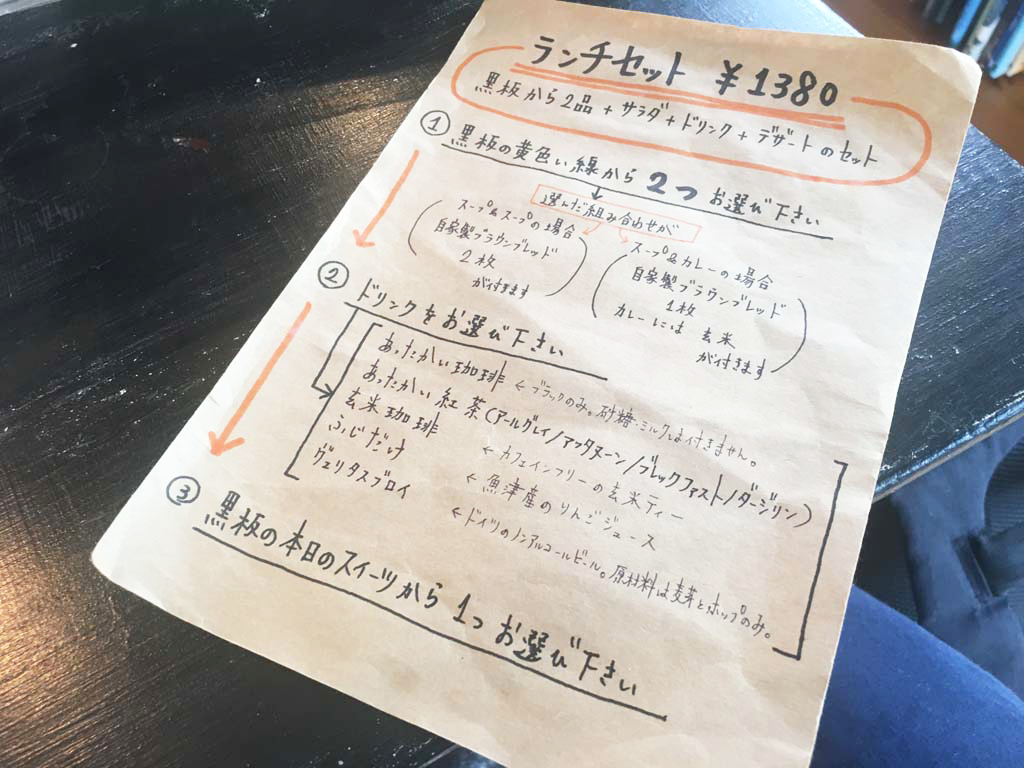 ランチセット ¥1380
黒板から2品+サラダ+ドリンク+デザートのセット
① 黒板の黄色い線から2つお選び下さい
選んだ組み合わせが
(スープ&スープの場合
自家製ブラウンブレッド
2枚
が付きます)
(スープ&カレーの場合
自家製ブラウンブレッド
1枚
カレーには 玄米
が付きます)
② ドリンクをお選び下さい
あったかい珈琲 ←ブラックのみ。砂糖・ミルクは付きません。
あったかい紅茶(アールグレイ/アッサターン/ブレックファスト/ダージリン)
玄米珈琲 ←カフェインフリーの玄米ティー
ふじだけ ←魚津産のりんごジュース
ヴェリタスブロイ ←ドイツのノンアルコールビール。原材料は麦芽とホップのみ。
③ 黒板の本日のスイーツから1つお選び下さい